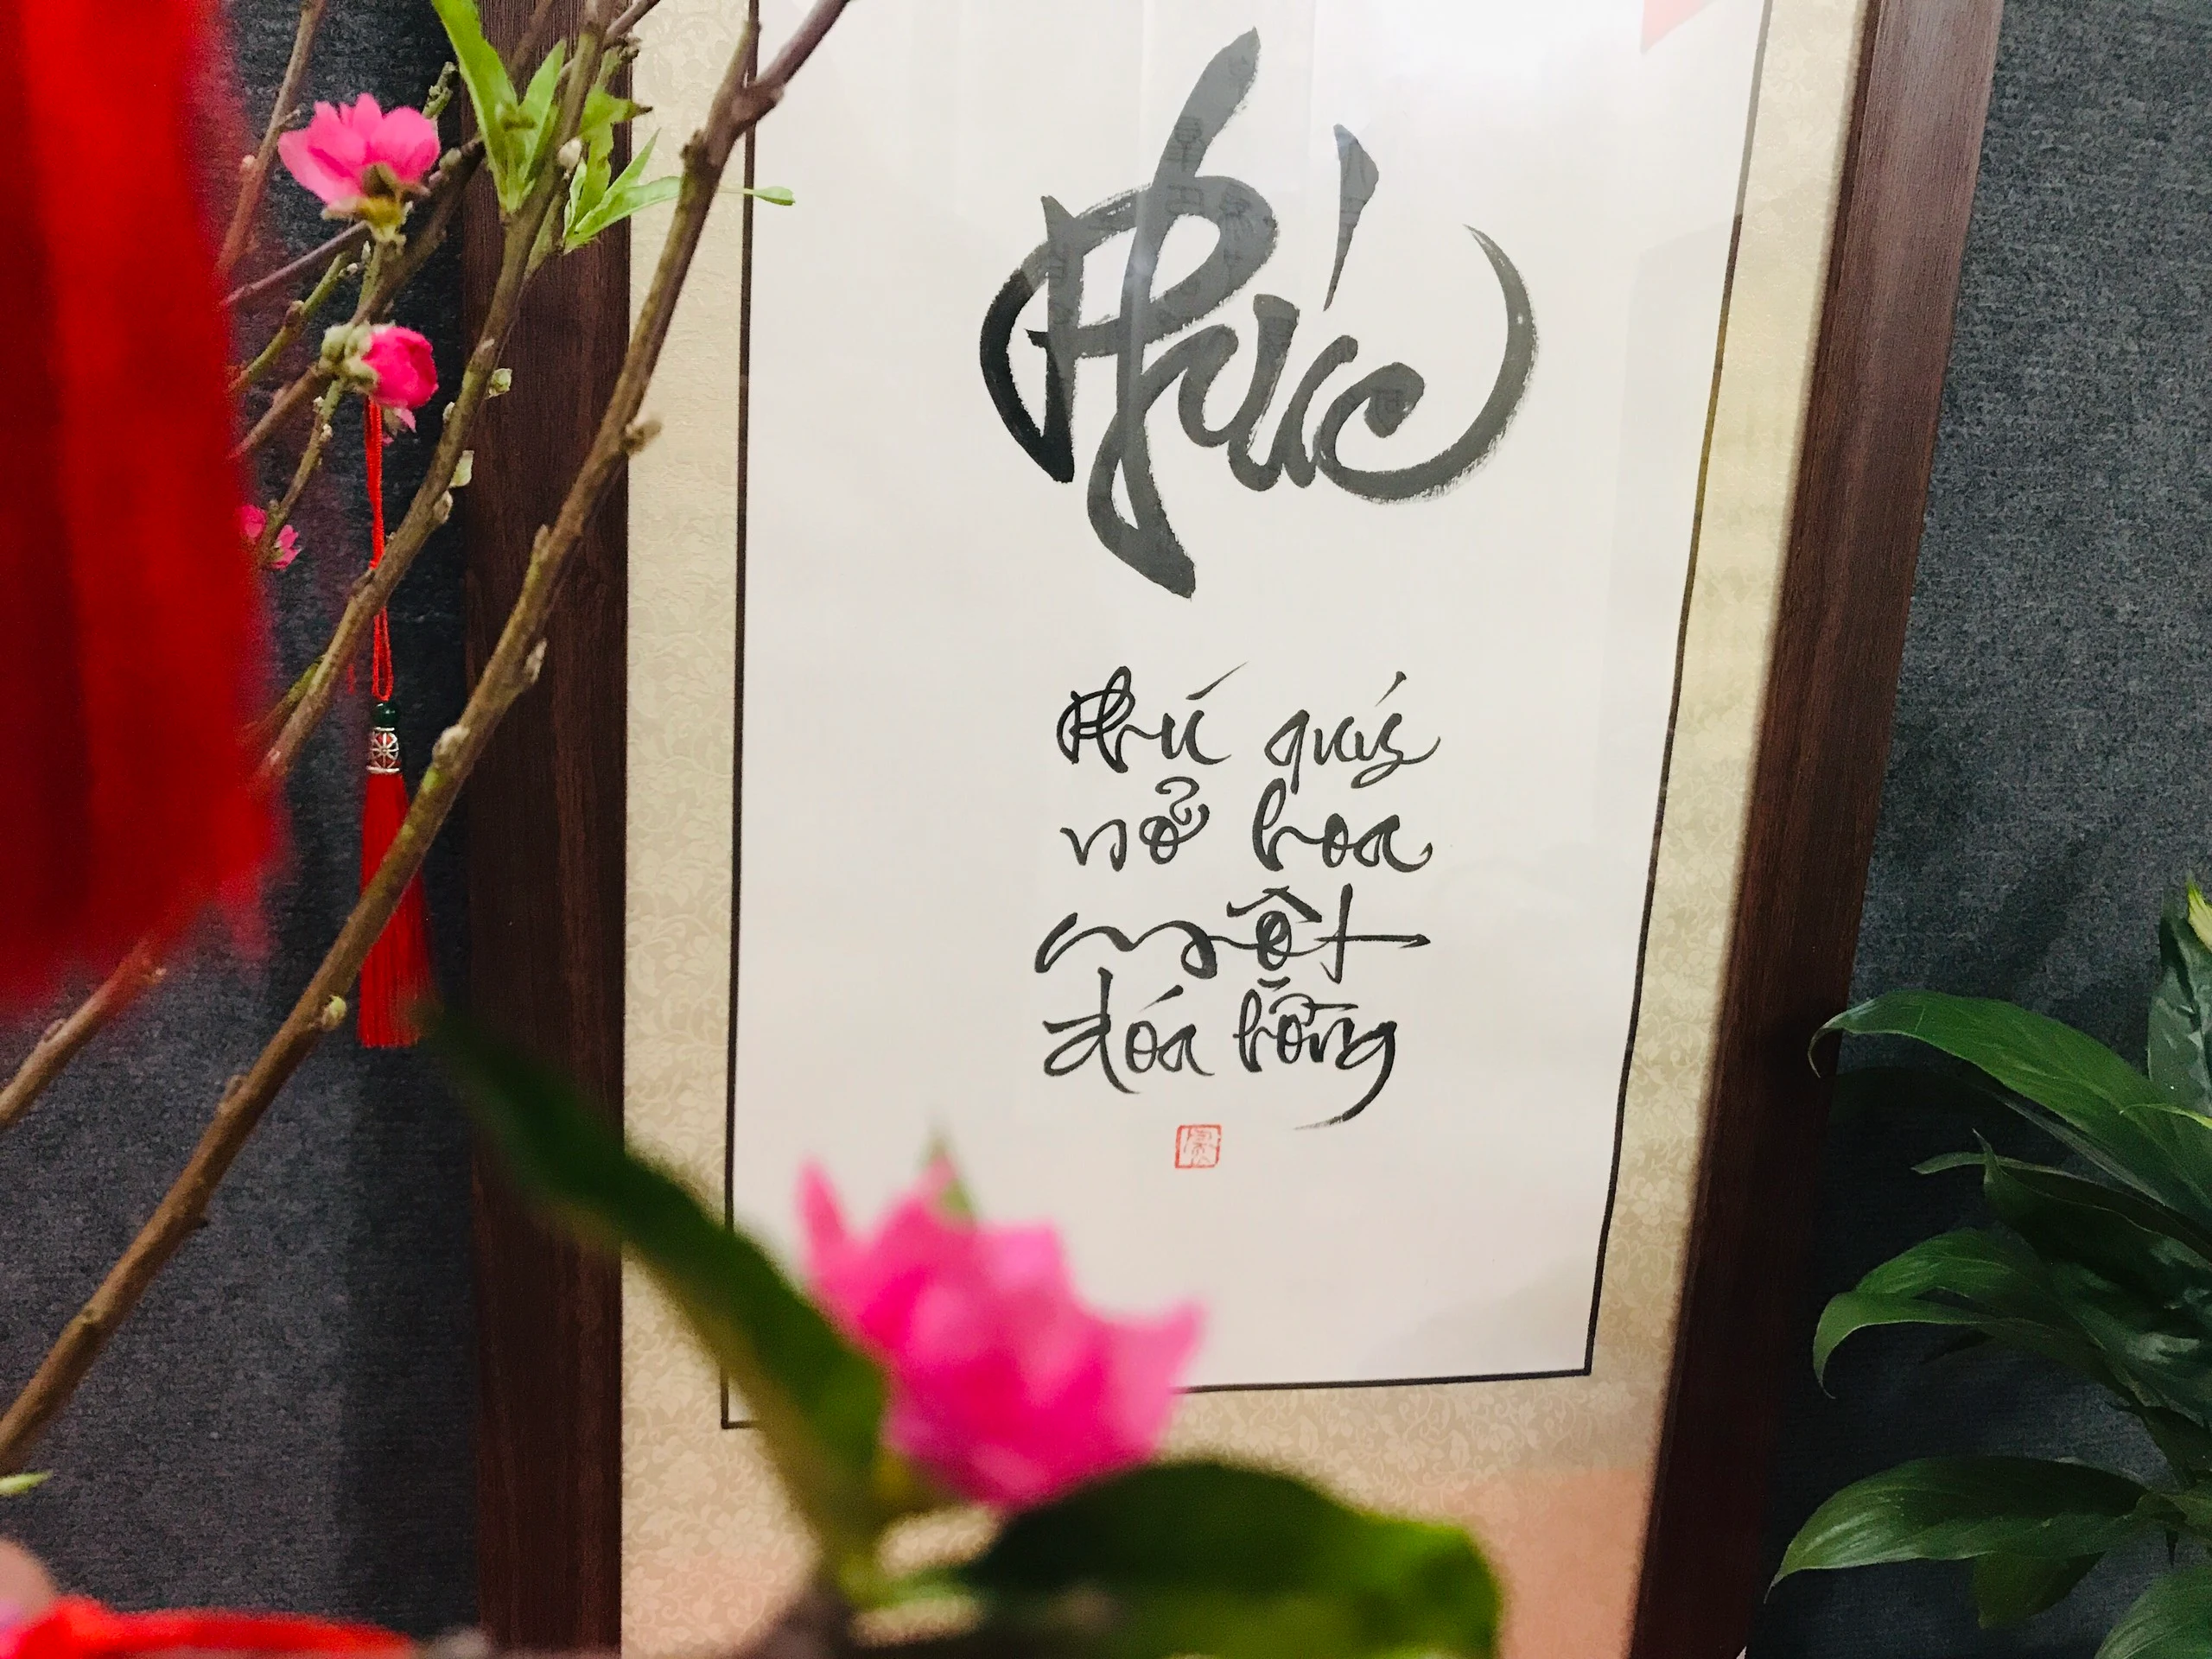 Phúc
Phú quý
nở hoa
một
đóa hồng